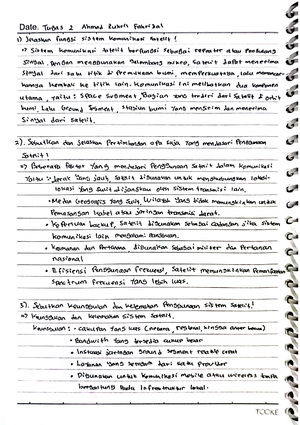 Date. Tugas 2 Ahmad Zukril Fahrizal
1) Jelaskan fungsi sistem komunikasi satelit!
=> Sistem komunikasi satelit berfungsi sebagai repeater atau pengulang
sinyal. Dengan menggunakan gelombang mikro, satelit dapat menerima
sinyal dari satu titik di permukaan bumi, memperkuatnya, lalu memancar-
kannya kembali ke titik lain. Komunikasi ini melibatkan dua komponen
utama, yaitu: Space segment, bagian yang terdiri dari satelit di orbit
bumi, lalu Ground segment, stasiun bumi yang mengirim dan menerima
sinyal dari satelit.
2). Sebutkan dan jelaskan Pertimbangan apa saja yang mendasari Penggunaan
satelit!
=> Beberapa faktor yang mendasari Penggunaan satelit dalam komunikasi
yaitu: Jarak yang jauh, satelit digunakan untuk menghubungkan lokasi-
lokasi yang sulit dijangkau oleh sistem transmisi lain.
• Medan Geografis yang sulit, wilayah yang tidak memungkinkan untuk
Pemasangan kabel atau jaringan transmisi darat.
• Keperluan backup, satelit digunakan sebagai cadangan jika sistem
komunikasi lain mengalami gangguan.
• Keamanan dan Pertahanan digunakan sebagai militer dan Pertahanan
nasional
• Efisiensi Penggunaan frekuensi, satelit memungkinkan Pemanfaatan
spectrum frekuensi yang lebih luas.
3). Sebutkan Keunggulan dan kelemahan Penggunaan sistem satelit!
=> Keunggulan dan kelemahan sistem satelit.
Keunggulan: - Cakupan yang luas (nasional, regional, hingga antar benua)
• Bandwith yang tersedia cukup besar
• Instalasi jaringan Ground segment relatif cepat
• Layanan yang seragam dari satu provider
• Digunakan untuk komunikasi mobile atau wireless tanpa
bergantung pada infrastruktur lokal.